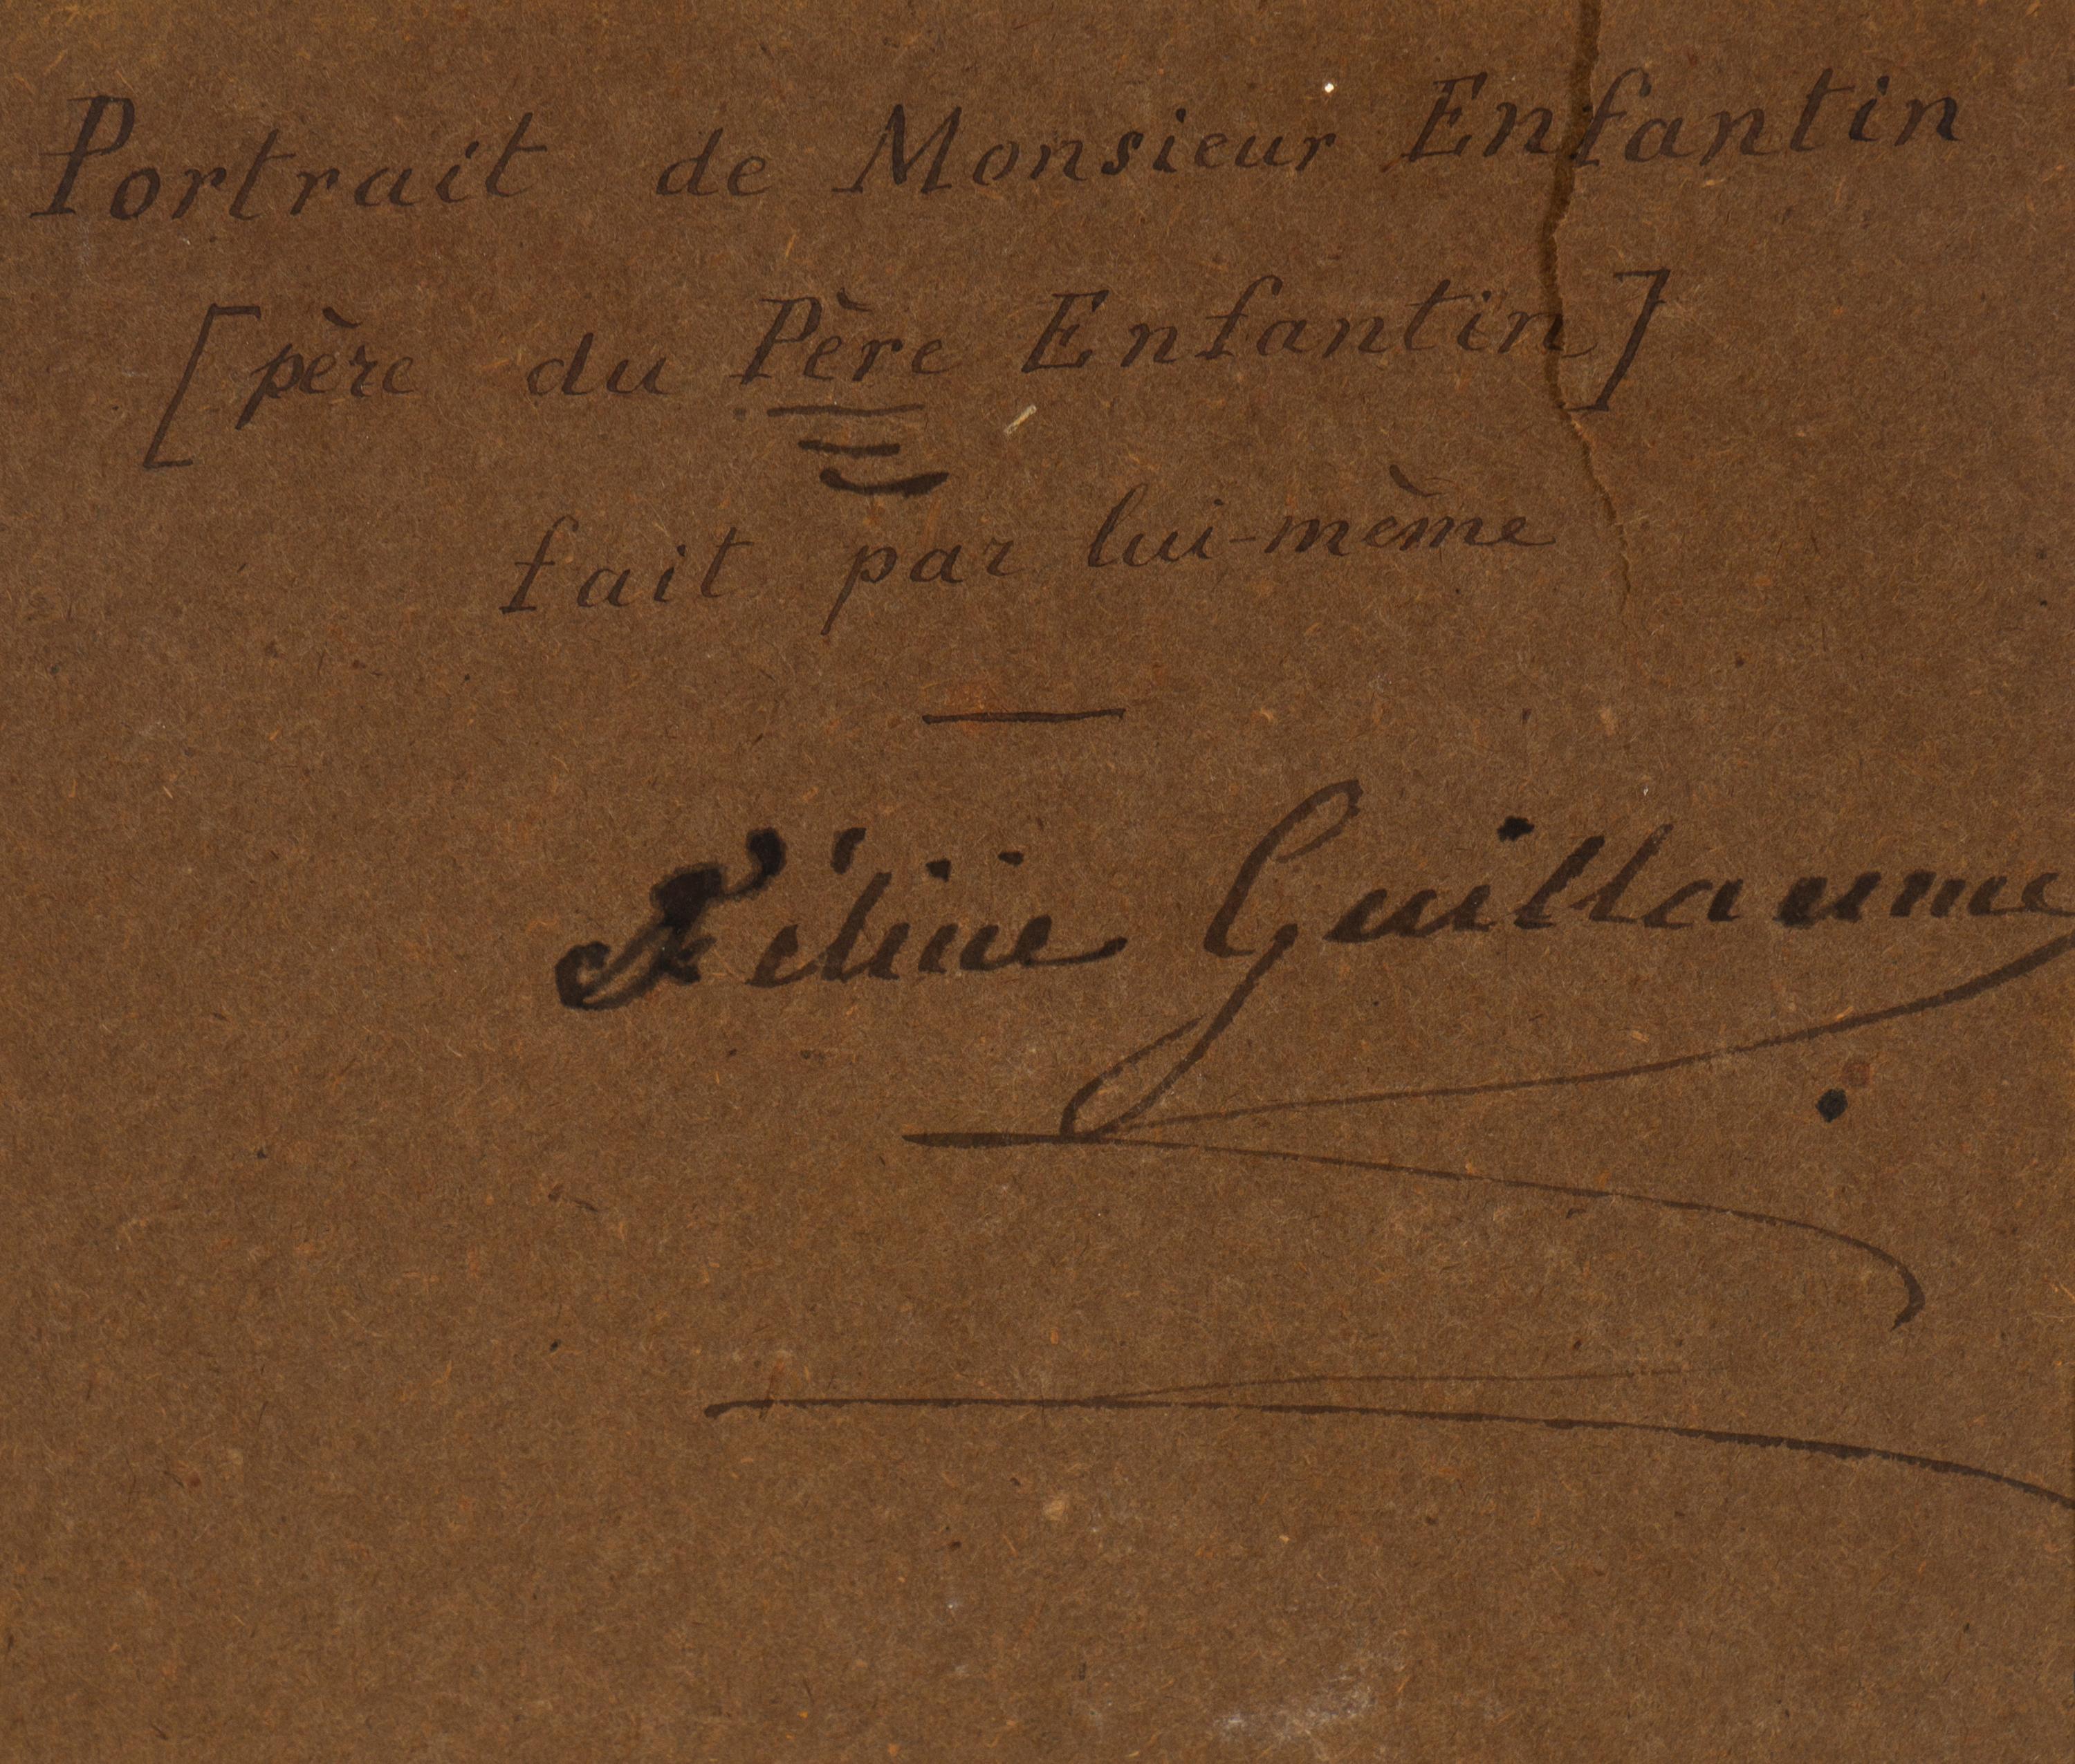 Portrait de Monsieur Enfantin
[père du Père Enfantin]
fait par lui-même
Félicie Guillaume